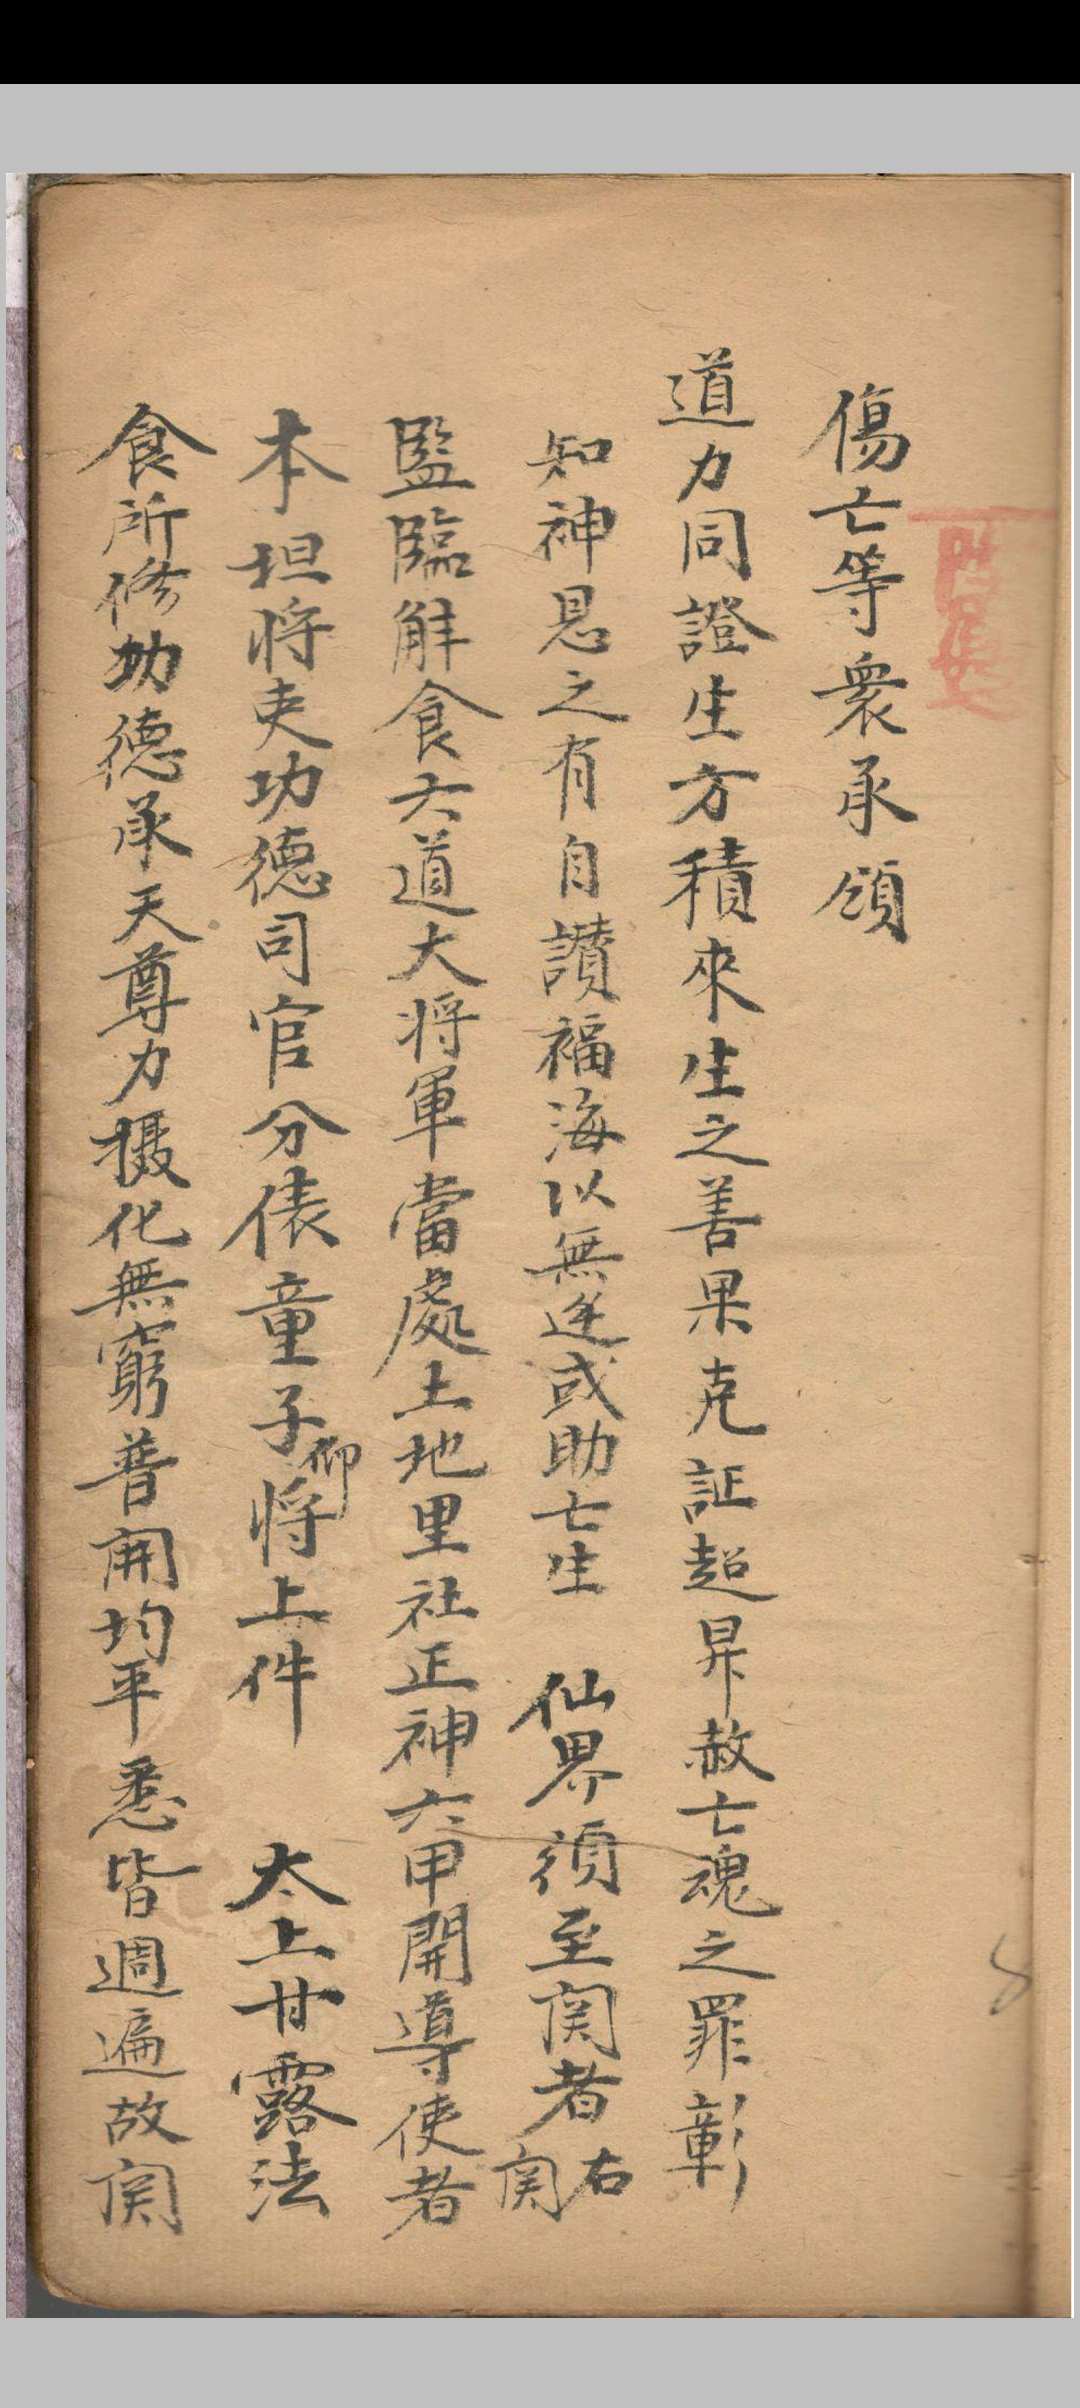 傷亡等衆承領
道力同證生方積來生之善果克証超昇赦亡魂之罪彰
知神恩之有自讃福海以無迯或助亡生　仙界須至関者右関
監臨觧食六道大将軍當處土地里社正神六甲開導使者
本坦将吏功德司官分俵童子仰将上件　太上甘露法
食所修功德承天尊力摄化無窮普開均平悉皆週遍故関